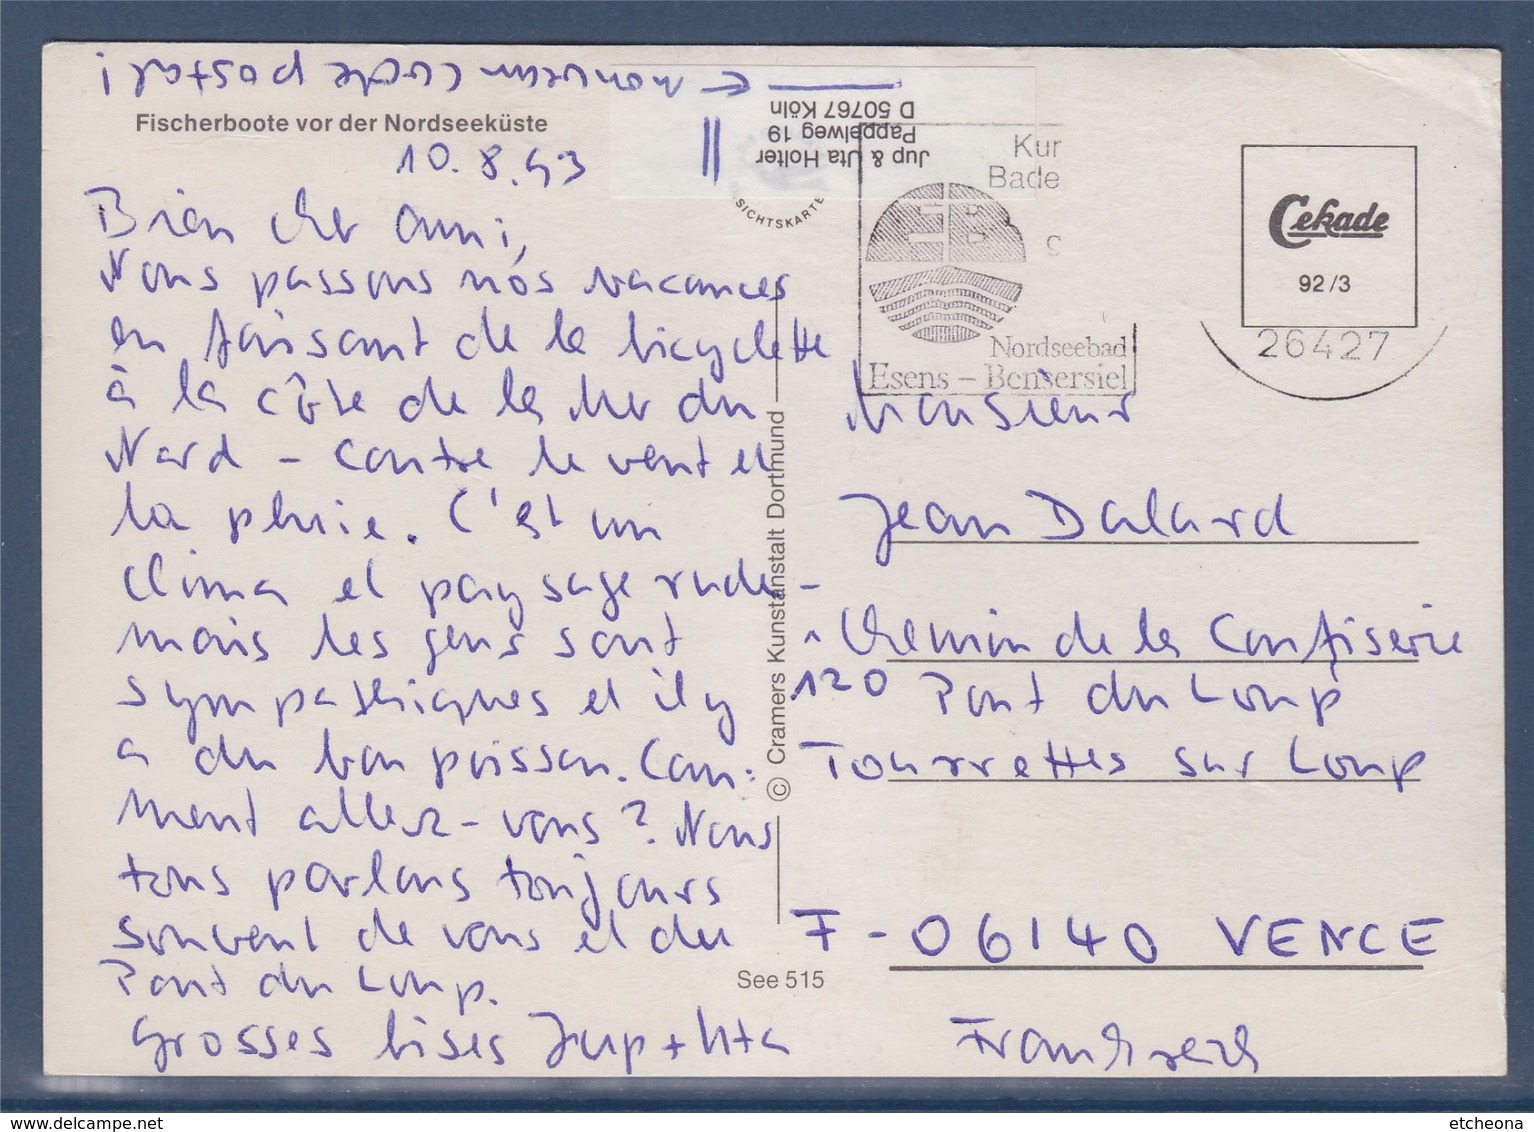 ← nouveau code postal!
Jup & Uta Holter
Pappelweg 19
D 50767 Köln
Fischerboote vor der Nordseeküste
10.8.93
Bien cher ami,
Nous passons nos vacances
en faisant de la bicyclette
à la côte de la Mer du
Nord - contre le vent et
la pluie. C'est un
clima et paysage rude -
mais les gens sont
sympathiques et il y
a du bon poisson. Com:
ment allez-vous? Nous
tous parlons toujours
souvent de vous et du
Pont du Loup.
Grosses bises Jup + Uta
© Cramers Kunstanstalt Dortmund
See 515
SICHTSKARTE
Kur
Bade
Nordseebad
Esens - Bensersiel
Cekade
92/3
26427
Monsieur
Jean Dalard
Chemin de la Confiserie
120 Pont du Loup
Tourrettes sur Loup
F - 06140 VENCE
Frankreich
etcheona